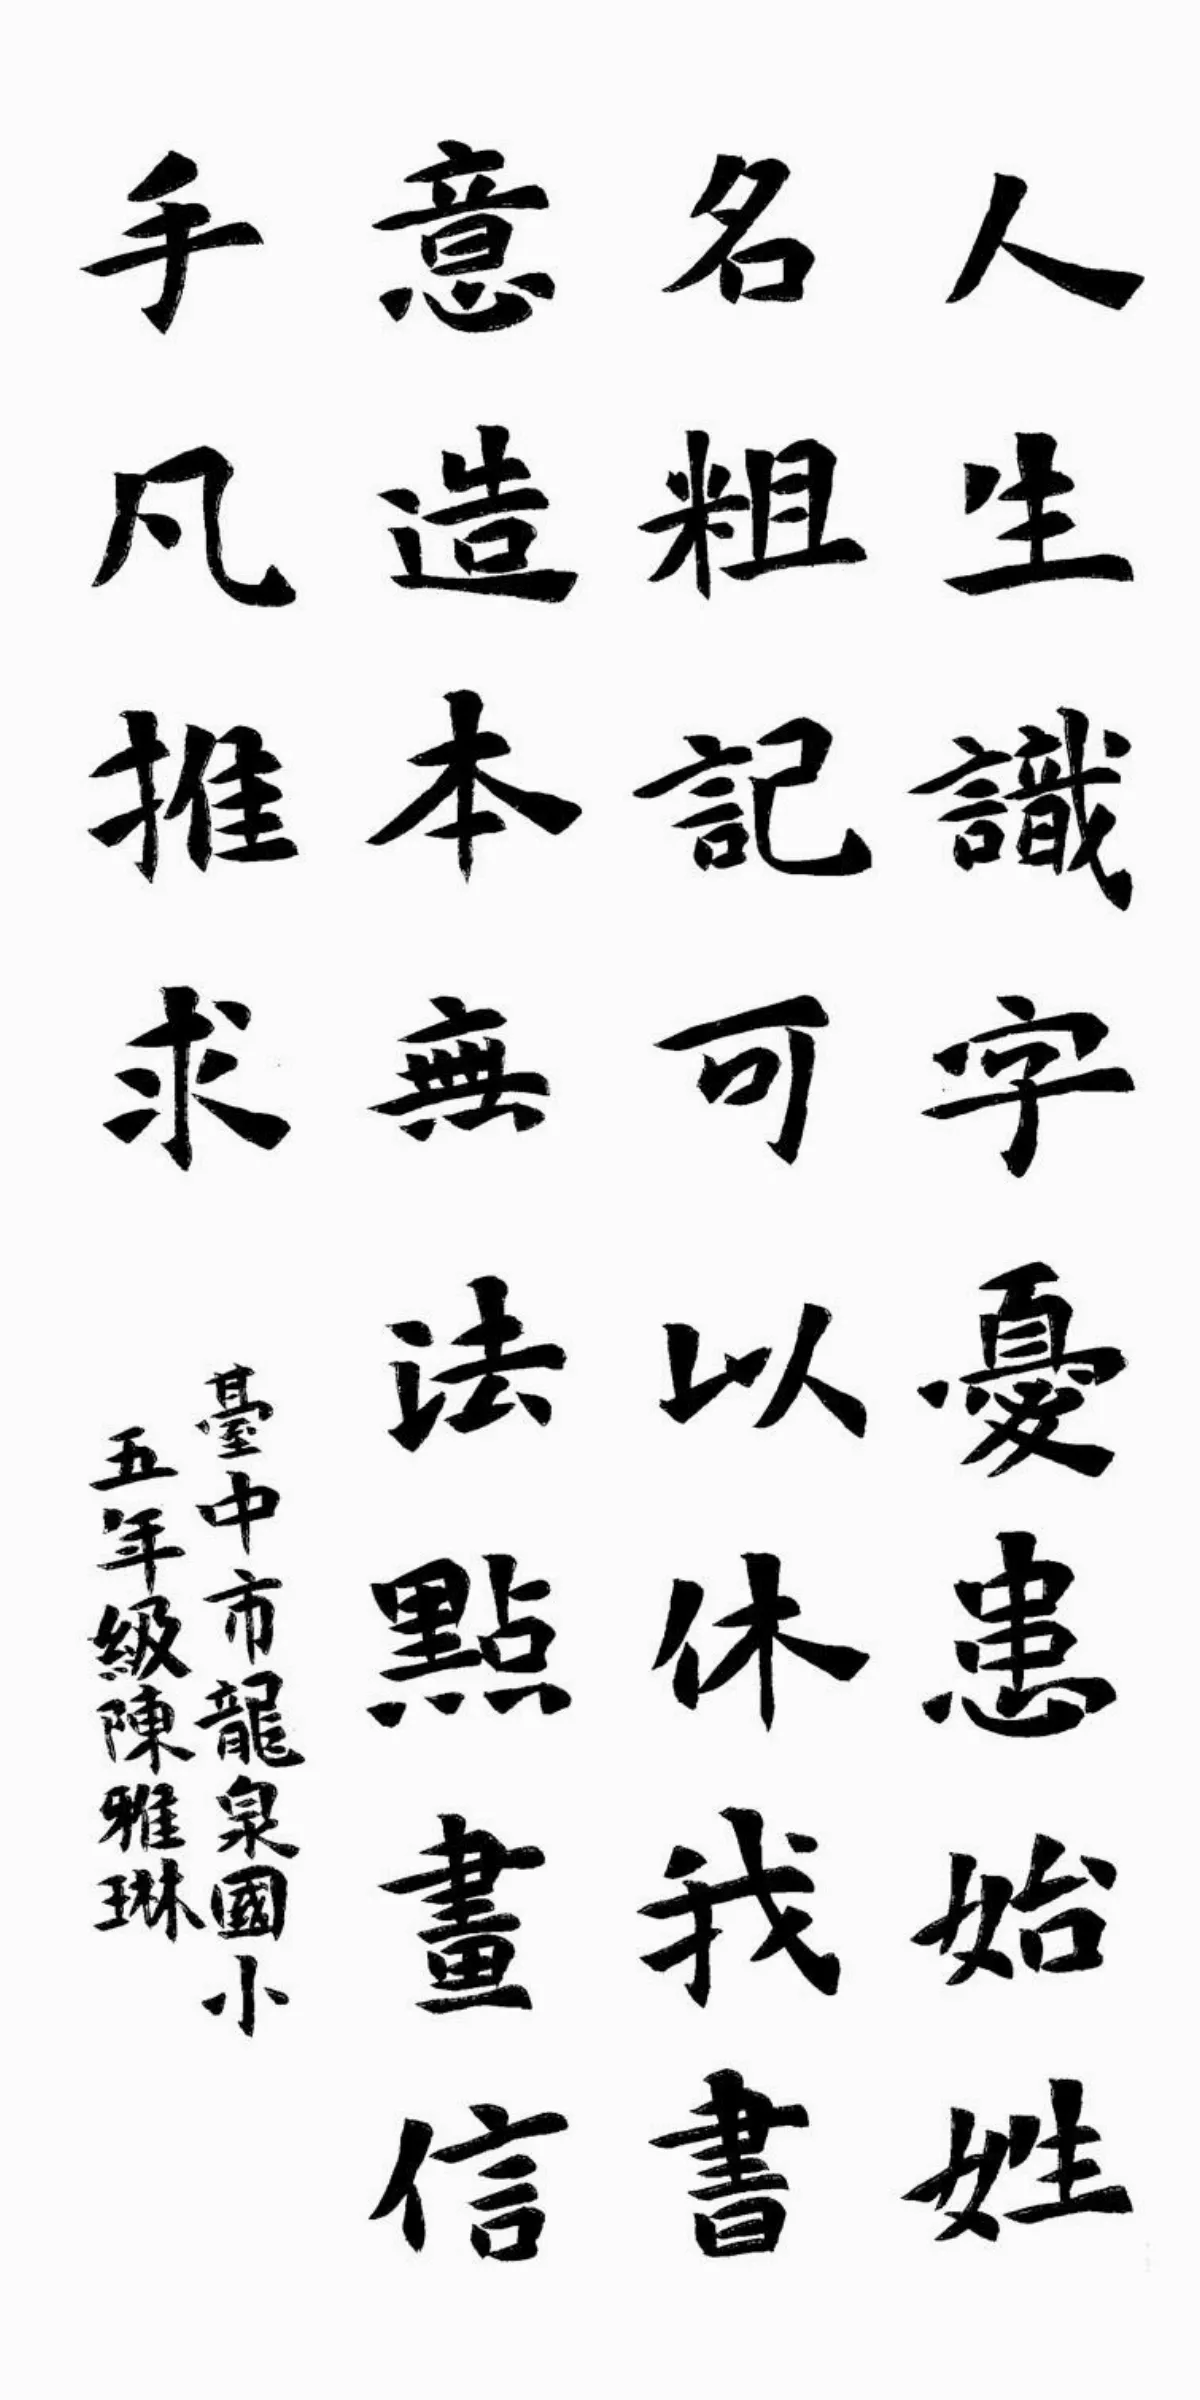 人生識字憂患始姓
名粗記可以休我書
意造本無法點畫信
手凡推求
臺中市龍泉國小
五年級陳雅琳